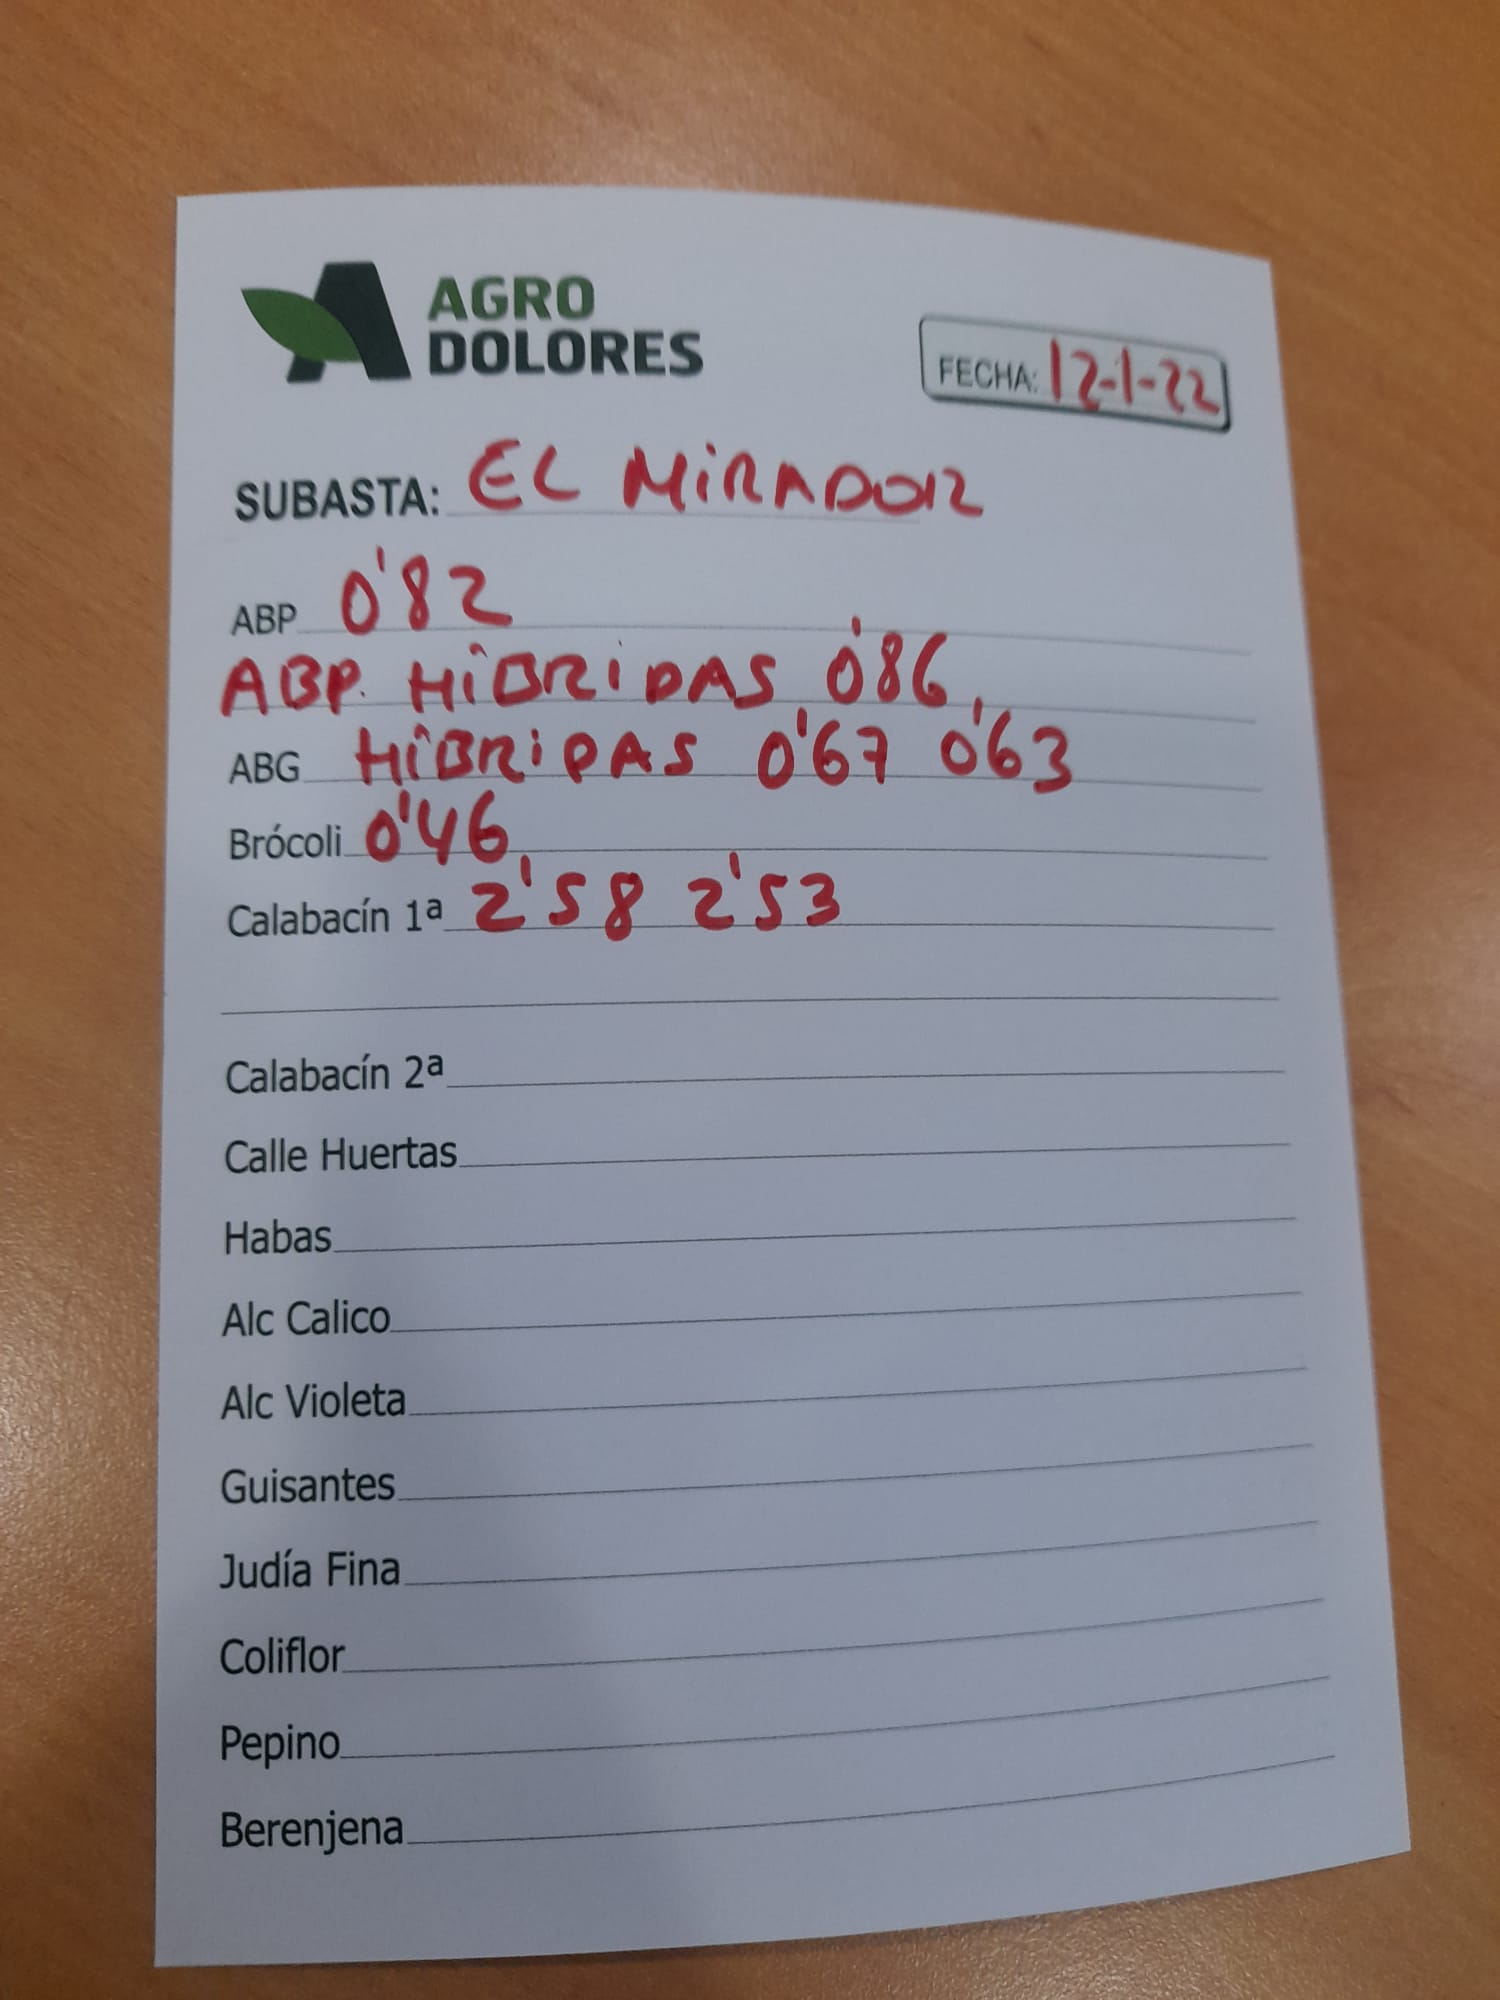 AGRO
DOLORES
FECHA: 12-1-22
SUBASTA: EL MiRADOR
ABP 0'82
ABP. HÍBRIDAS 0'86
ABG HÍBRIDAS 0'67 0'63
Brócoli 0'46
Calabacín 1ª 2'58 2'53
Calabacín 2ª
Calle Huertas
Habas
Alc Calico
Alc Violeta
Guisantes
Judía Fina
Coliflor
Pepino
Berenjena